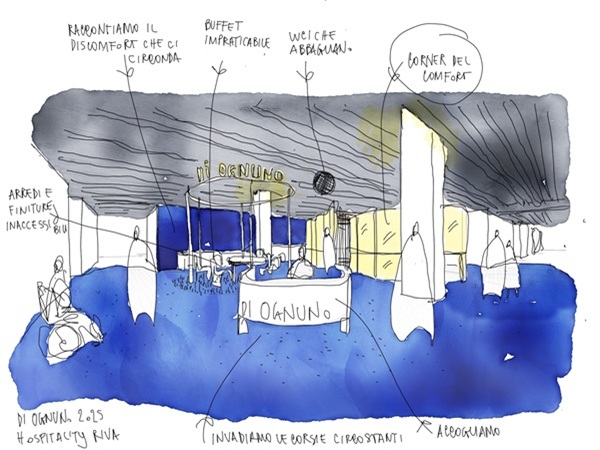 RACCONTIAMO IL
DISCOMFORT CHE CI
CIRCONDA
BUFFET
IMPRATICABILE
LUCI CHE
ABBAGLIANO
CORNER DEL
COMFORT
ARREDI E
FINITURE
INACCESSIBILI
DI OGNUNO
DI OGNUNO
DI OGNUNO 2025
HOSPITALITY RIVA
INVADIAMO LE CORSIE CIRCOSTANTI
ACCOGLIAMO